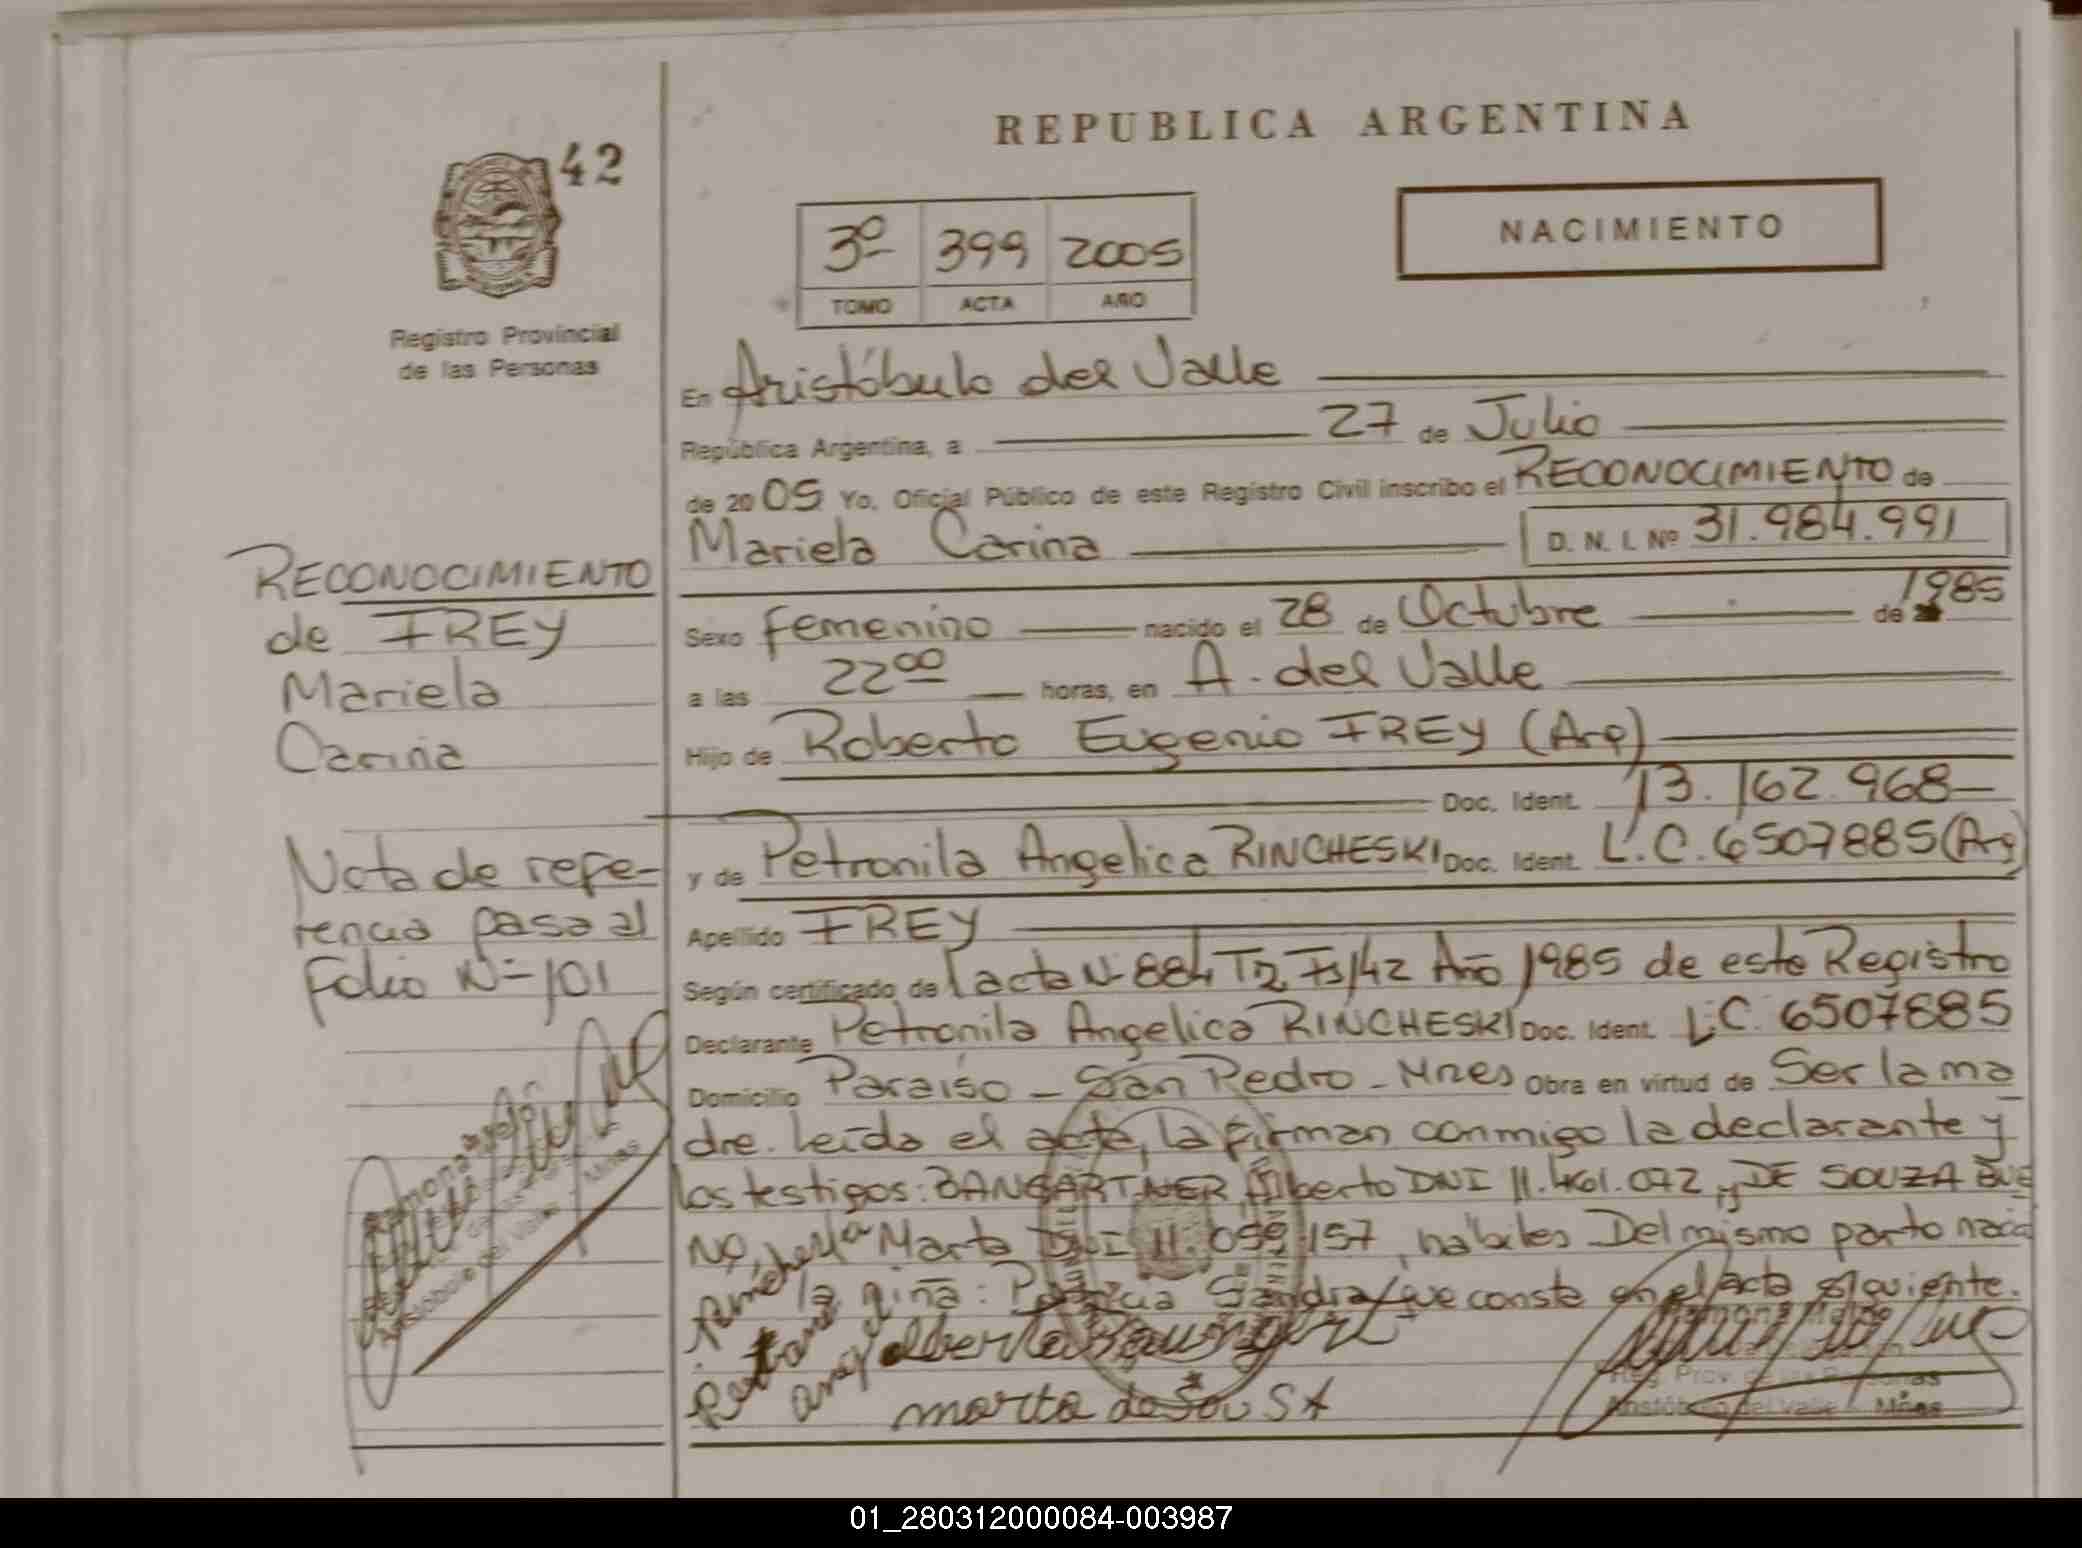 REPUBLICA ARGENTINA
42
NACIMIENTO
3º 399 2005
TOMO ACTA AÑO
Registro Provincial
de las Personas
En Aristóbulo del Valle
República Argentina, a 27 de Julio
de 2005 Yo, Oficial Público de este Registro Civil inscribo el RECONOCIMIENTO de
Mariela Carina D. N. I. Nº 31.984.991
Sexo femenino nacido el 28 de Octubre de 1985
a las 22 00 horas, en A. del Valle
Hijo de Roberto Eugenio FREY (Arg)
Doc. Ident. 13.162.968
y de Petronila Angelica RINCHESKI Doc. Ident. L.C. 6507885 (Arg)
Apellido FREY
Según certificado de l acta Nº 884 T2 Fs 142 Año 1985 de este Registro
Declarante Petronila Angelica RINCHESKI Doc. Ident. L.C. 6507885
Domicilio Paraíso - San Pedro - Mnes Obra en virtud de Ser la ma
dre. Leída el acta, la firman conmigo la declarante y
los testigos: BANGARTNER, Alberto DNI 11.461.072, y DE SOUZA BUE
NO, Marta DNI 11.059.157, hábiles Del mismo parto nació
la niña: Patricia Sandra que consta en el acta siguiente.
marta de Sou SA
Reg. Prov. de las Personas
Aristóbulo del Valle Mnes
RECONOCIMIENTO
de FREY
Mariela
Carina
Nota de refe-
rencia pasa al
Folio Nº 101
Aristóbulo del Valle - Mnes
01_280312000084-003987